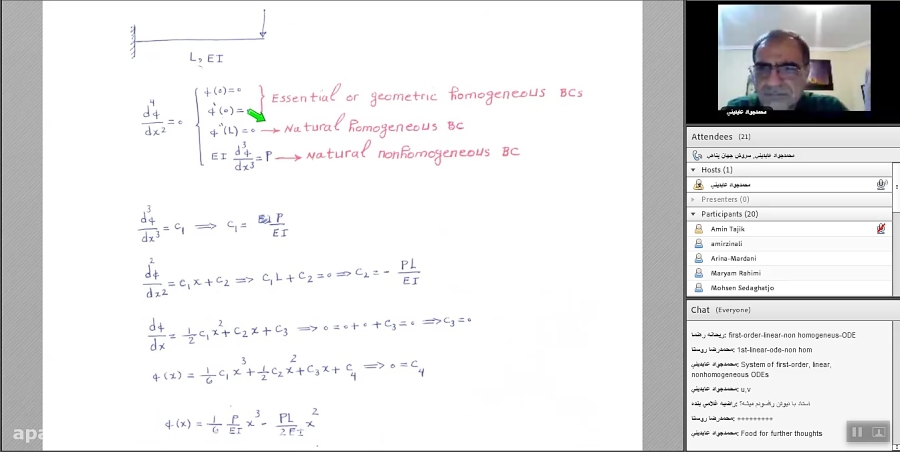 L, EI
d⁴ϕ/dx² = 0
ϕ(0)=0
ϕ'(0)=
Essential or geometric homogeneous BCs
ϕ"(L)=0 → Natural homogeneous BC
EI d³ϕ/dx³ = P → Natural nonhomogeneous BC
d³ϕ/dx³ = C₁ ⟹ C₁ = P/EI
d²ϕ/dx² = C₁x + C₂ ⟹ C₁L + C₂ = 0 ⟹ C₂ = - PL/EI
dϕ/dx = 1/2 C₁x² + C₂x + C₃ ⟹ 0 = 0 + 0 + C₃ = 0 ⟹ C₃ = 0
ϕ(x) = 1/6 C₁x³ + 1/2 C₂x² + C₃x + C₄ ⟹ 0 = C₄
ϕ(x) = 1/6 P/EI x³ - PL/2EI x²
apa
محمدجواد عابدینی
Attendees (21)
محمدجواد عابدینی, سروش جهان پناهی
Hosts (1)
محمدجواد عابدینی
Presenters (0)
Participants (20)
Amin Tajik
amirzinali
Arina-Mardani
Maryam Rahimi
Mohsen Sedaghatjo
Chat (Everyone)
ریحانه رهنما: first-order-linear-non homogeneus-ODE
محمدرضا روستا: 1st-linear-ode-non hom
محمدجواد عابدینی: System of first-order, linear,
nonhomogeneous ODEs
محمدجواد عابدینی: u,v
راضیه غلامی بنده: استاد با نیوتن رافسونم میشه؟
محمدرضا روستا: +++++++++
محمدجواد عابدینی: Food for further thoughts